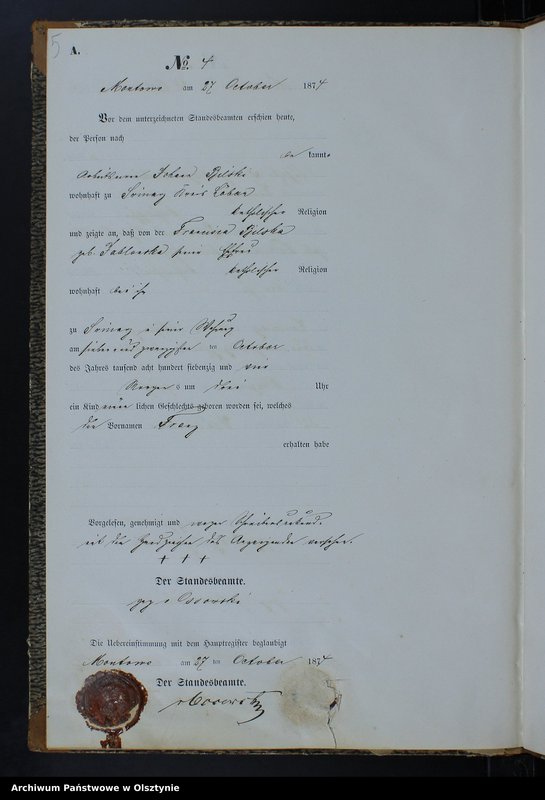 5
A.
No. 4
Montowo am 27 October 1874
Vor dem unterzeichneten Standesbeamten erschien heute,
der Person nach
be kannt
Johann
wohnhaft zu Kreis Löbau
katholischer Religion
und zeigte an, daß von der Francisca
geb. seine Ehefrau
katholischer Religion
wohnhaft bei ihm
zu in seiner Wohnung
am sieben und zwanzigsten ten October
des Jahres tausend acht hundert siebenzig und vier
Morgens um drei Uhr
ein Kind männlichen Geschlechts geboren worden sei, welches
die Vornamen Franz
erhalten habe
Vorgelesen, genehmigt und wegen
mit den Handzeichen des Anzeigenden versehen.
+ + +
Der Standesbeamte.
gez v Ossowski
Die Uebereinstimmung mit dem Hauptregister beglaubigt
Montowo am 27 ten October 1874
Der Standesbeamte.
v Ossowski
Archiwum Państwowe w Olsztynie